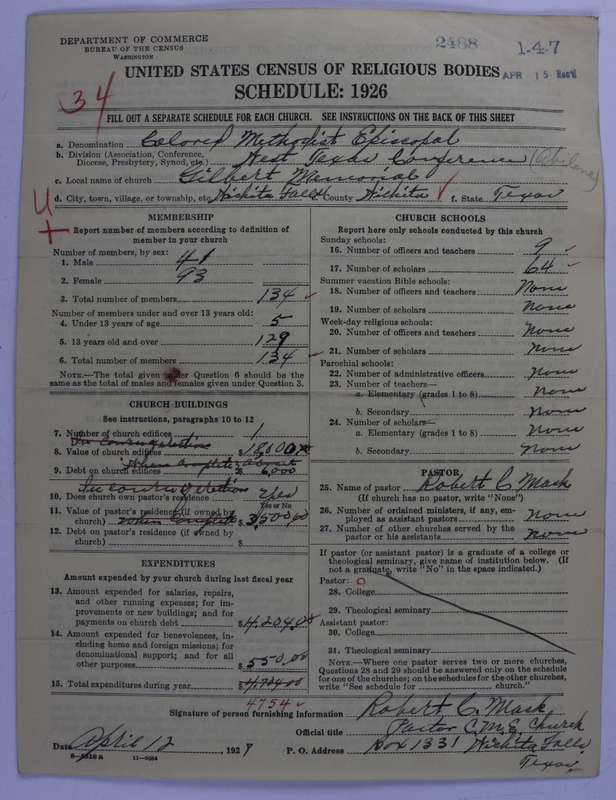 DEPARTMENT OF COMMERCE
BUREAU OF THE CENSUS
WASHINGTON
2488
1-4-7
UNITED STATES CENSUS OF RELIGIOUS BODIES
APR 15 Rec'd
SCHEDULE: 1926
34
FILL OUT A SEPARATE SCHEDULE FOR EACH CHURCH. SEE INSTRUCTIONS ON THE BACK OF THIS SHEET
a. Denomination Colored Methodist Episcopal
b. Division (Association, Conference, Diocese, Presbytery, Synod, etc.) West Texas Conference (Abilene)
c. Local name of church Gilbert Memorial
d. City, town, village, or township, etc. Wichita Falls e. County Wichita f. State Texas
MEMBERSHIP
Report number of members according to definition of
member in your church
Number of members, by sex:
1. Male 41
2. Female 93
3. Total number of members 134
Number of members under and over 13 years old:
4. Under 13 years of age 5
5. 13 years old and over 129
6. Total number of members 134
NOTE.—The total given under Question 6 should be the
same as the total of males and females given under Question 3.
CHURCH BUILDINGS
See instructions, paragraphs 10 to 12
7. Number of church edifices 1
8. Value of church edifices $
9. Debt on church edifices $ 6,000
10. Does church own pastor's residence? Yes
Yes or No
11. Value of pastor's residence (if owned by
church) when complete $ 3,500.00
12. Debt on pastor's residence (if owned by
church) $
EXPENDITURES
Amount expended by your church during last fiscal year
13. Amount expended for salaries, repairs,
and other running expenses; for improvements
or new buildings; and for
payments on church debt $
14. Amount expended for benevolences, including
home and foreign missions; for
denominational support; and for all
other purposes $ 550.00
15. Total expenditures during year
4754
CHURCH SCHOOLS
Report here only schools conducted by this church
Sunday schools:
16. Number of officers and teachers 9
17. Number of scholars 64
Summer vacation Bible schools:
18. Number of officers and teachers None
19. Number of scholars None
Week-day religious schools:
20. Number of officers and teachers None
21. Number of scholars None
Parochial schools:
22. Number of administrative officers None
23. Number of teachers—
a. Elementary (grades 1 to 8) None
b. Secondary None
24. Number of scholars—
a. Elementary (grades 1 to 8) None
b. Secondary None
PASTOR
25. Name of pastor Robert C. Mask
(If church has no pastor, write "None")
26. Number of ordained ministers, if any, employed
as assistant pastors None
27. Number of other churches served by the
pastor or his assistants None
If pastor (or assistant pastor) is a graduate of a college or
theological seminary, give name of institution below. (If
not a graduate, write "No" in the space indicated.)
Pastor: O
28. College
29. Theological seminary
Assistant pastor:
30. College
31. Theological seminary
NOTE.—Where one pastor serves two or more churches,
Questions 28 and 29 should be answered only on the schedule
for one of the churches; on the schedules for the other churches,
write "See schedule for church."
Signature of person furnishing information Robert C. Mask
Official title Pastor C. M. E. Church
Date April 12, 1927 P. O. Address Box 1331 Wichita Falls,
Texas
8—5518a 11—9054